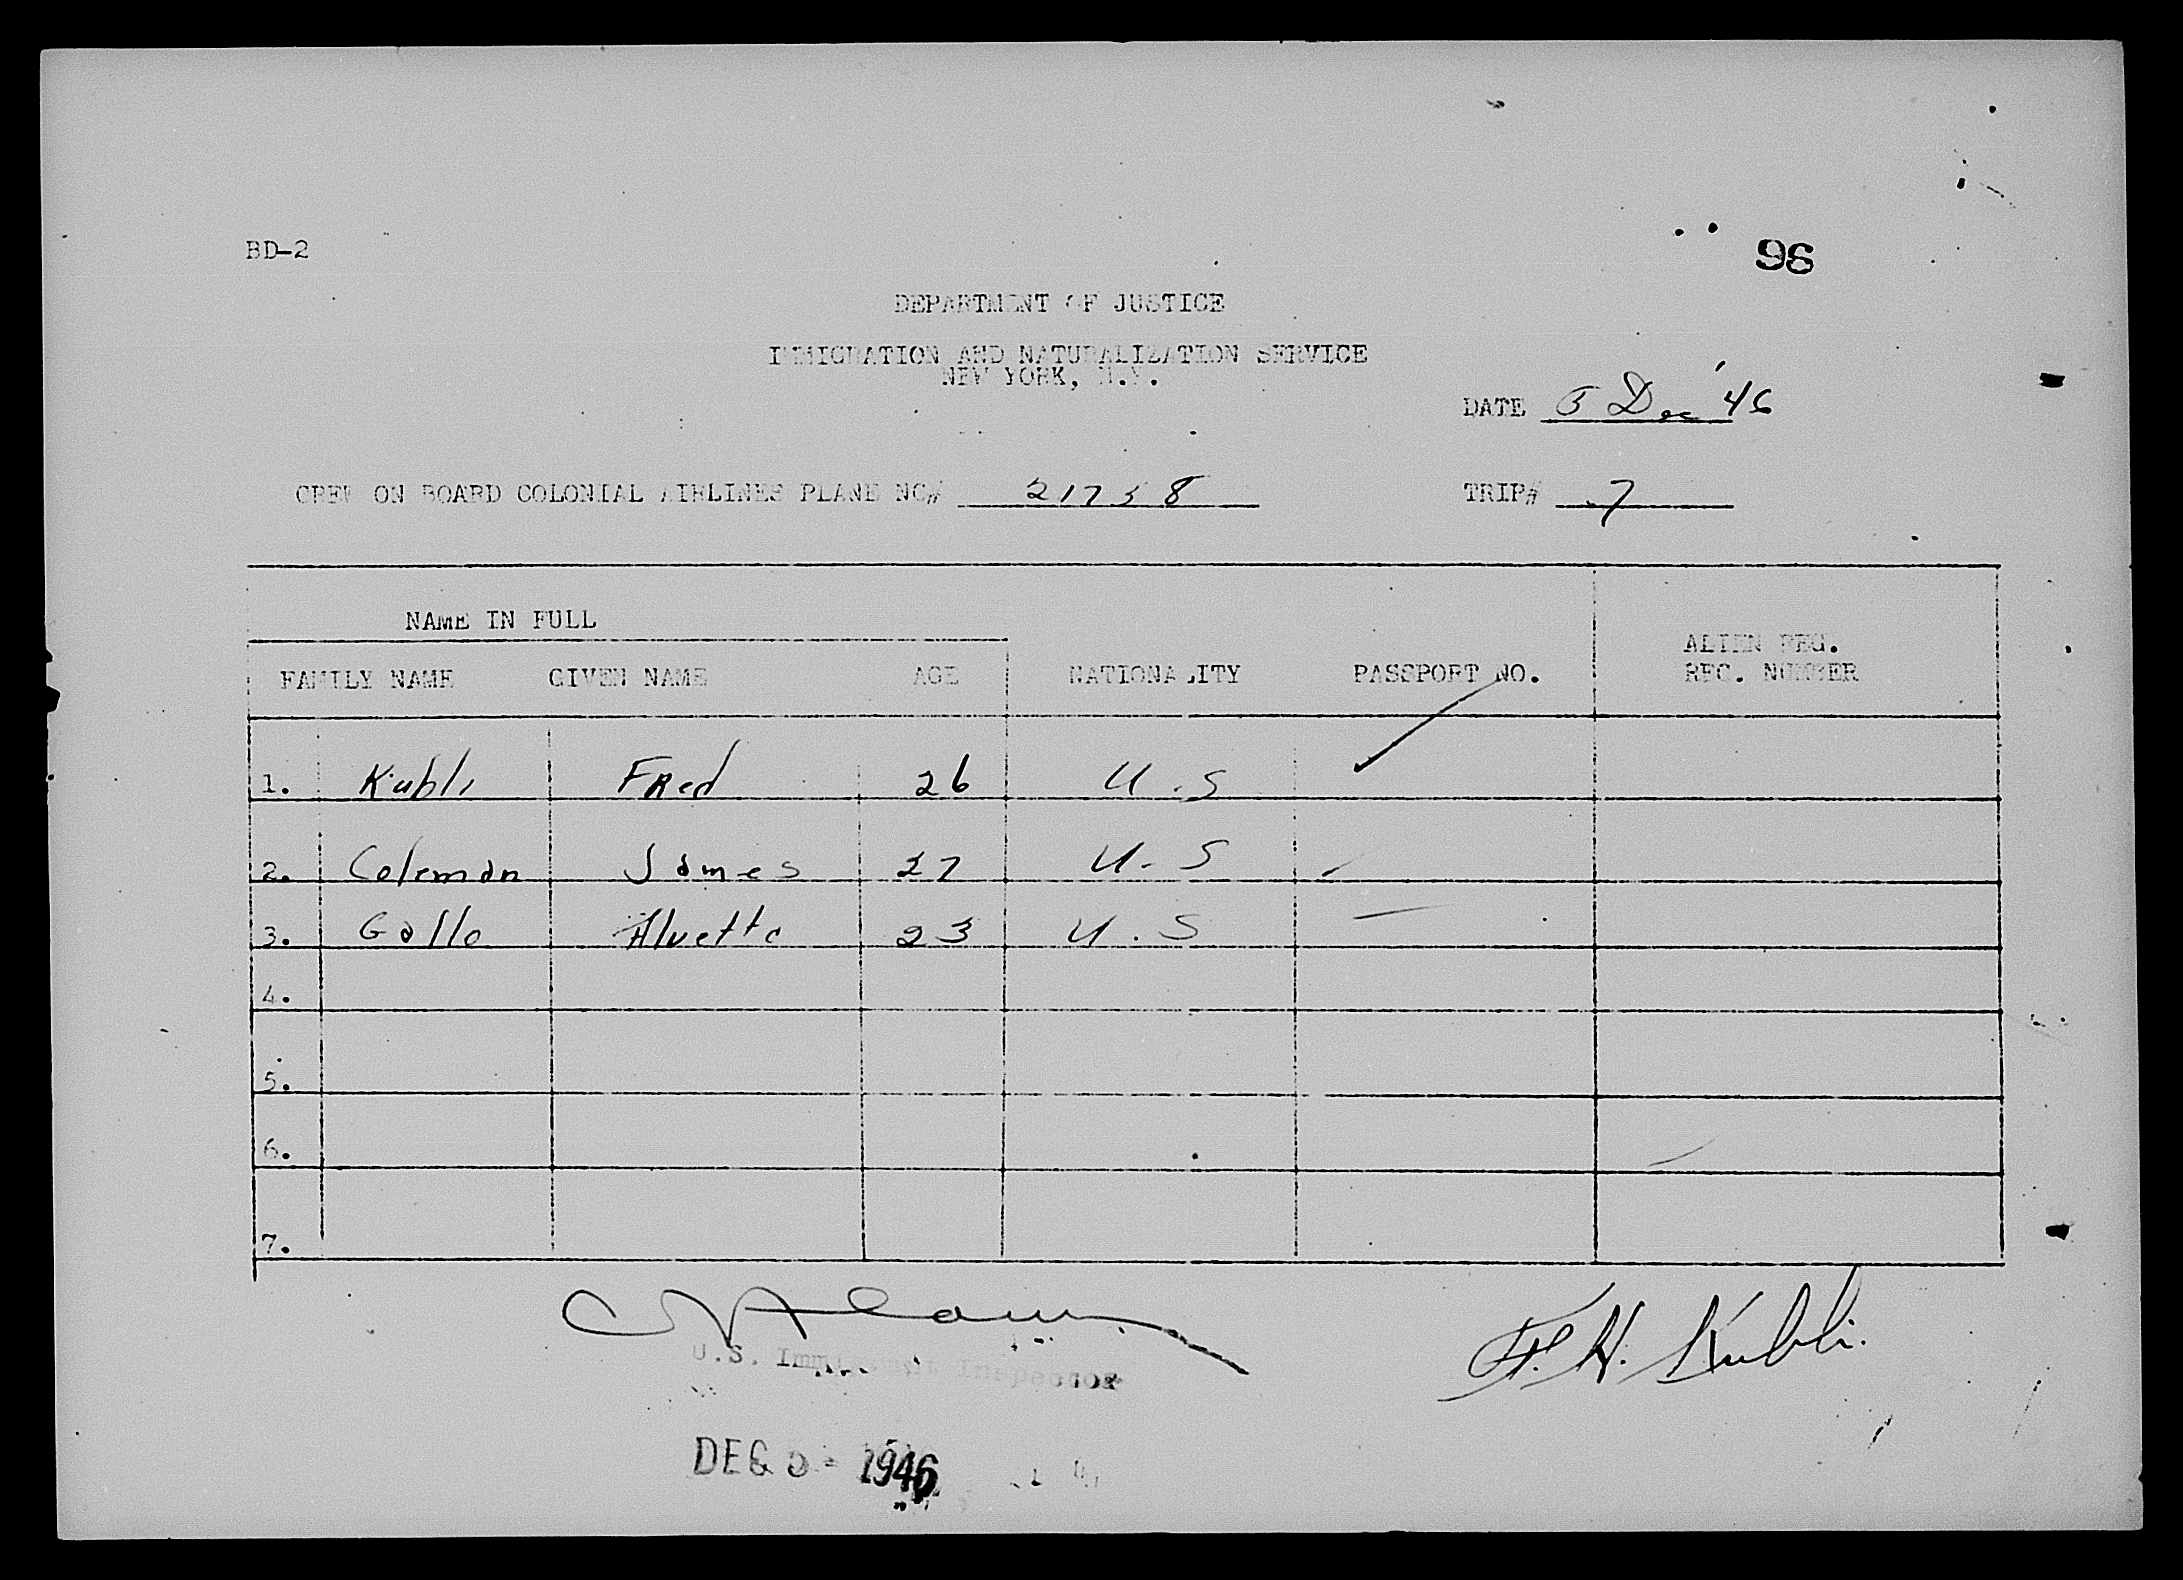 BD-2
96
DEPARTMENT OF JUSTICE
IMMIGRATION AND NATURALIZATION SERVICE
NEW YORK, N.Y.
DATE 5 Dec '46
CREW ON BOARD COLONIAL AIRLINES PLANE NO# 21758
TRIP# 7
NAME IN FULL
FAMILY NAME GIVEN NAME AGE NATIONALITY PASSPORT NO. ALIEN REG. REC. NUMBER
1. Kubli FRed 26 U.S
2. Coleman James 27 U.S
3. Gallo 23 U.S
4.
5.
6.
7.
U.S. Immigrant Inspector
F. H. Kubli
DEC 5 - 1946